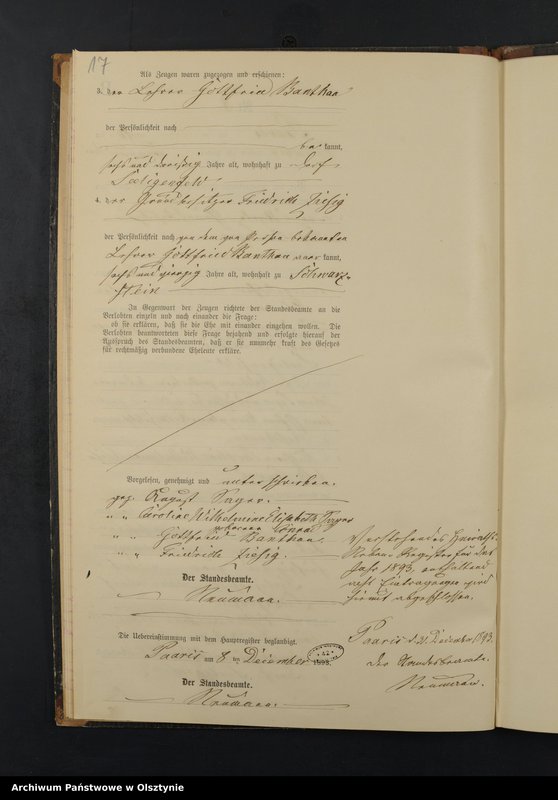 17
Als Zeugen waren zugezogen und erschienen:
3. der Lehrer Gottfried Banthau
der Persönlichkeit nach
be kannt,
sechs und dreißig Jahre alt, wohnhaft zu Dorf
Seeligenfeld
4. der Grundbesitzer Friedrich
der Persönlichkeit nach von dem von Person bekannten
Lehrer Gottfried Banthau kannt,
sechs und vierzig Jahre alt, wohnhaft zu Schwarz-
stein
In Gegenwart der Zeugen richtete der Standesbeamte an die
Verlobten einzeln und nach einander die Frage:
ob sie erklären, daß sie die Ehe mit einander eingehen wollen. Die
Verlobten beantworteten diese Frage bejahend und erfolgte hierauf der
Ausspruch des Standesbeamten, daß er sie nunmehr kraft des Gesetzes
für rechtmäßig verbundene Eheleute erkläre.
Vorgelesen, genehmigt und unterschrieben.
gez. August
" " Caroline Wilhelmine Elisabeth
geborene
" " Gottfried Banthau
" " Friedrich
Der Standesbeamte.
Neumann.
Die Uebereinstimmung mit dem Hauptregister beglaubigt.
Paaris am 8 ten December 1893.
Der Standesbeamte.
Neumann.
Vorstehendes Heiraths-
Neben-Register für das
Jahr 1893, enthaltend
acht Eintragungen wird
hiermit abgeschlossen.
Paaris d. 31. December 1893.
Der Standesbeamte.
Neumann.
Archiwum Państwowe w Olsztynie